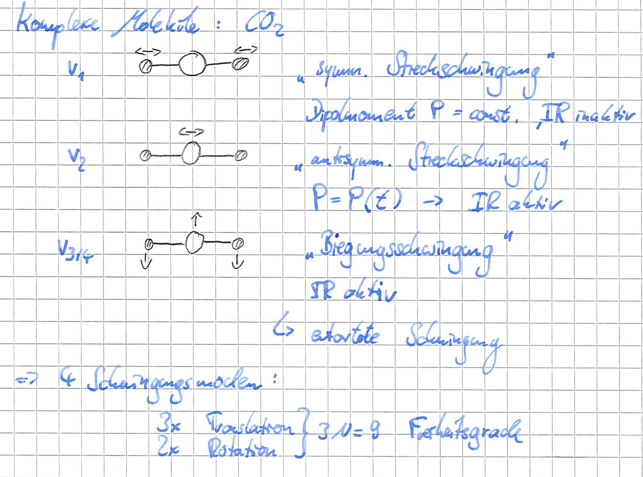 Komplexe Moleküle : CO2
ν1 „symm. Streckschwingung"
Dipolmoment P = const. , IR inaktiv
ν2 „antisymm. Streckschwingung"
P = P(t) → IR aktiv
ν3/4 „Biegungsschwingung"
IR aktiv
↳ entartete Schwingung
=> 4 Schwingungsmoden :
3x Translation } 3N = 9 Freiheitsgrade
2x Rotation